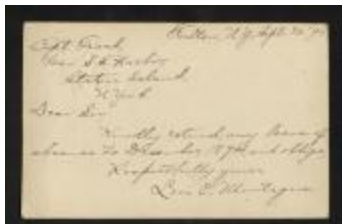 Fulton N.Y. Sept. 30
Capt. Trask,
Snug Harbor
Staten Island,
N. York
Dear Sir
Kindly extend my leave of
absence to December 27th and oblige
Respectfully yours